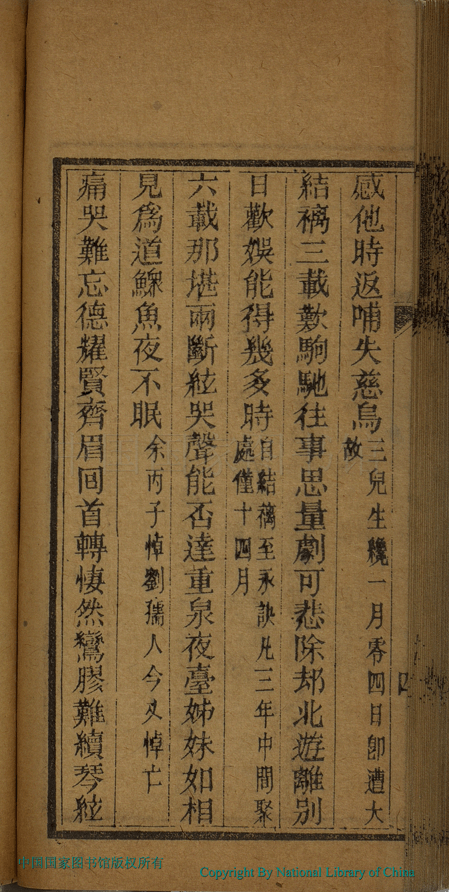 感他時返哺失慈烏三兒生纔一月零四日卽遭大故
結褵三載歎駒馳往事思量劇可悲除却北遊離別
日歡娛能得幾多時自結褵至永訣凡三年中間聚處僅十四月
六載那堪兩斷絃哭聲能否達重泉夜臺姊妹如相
見爲道鰥魚夜不眠余丙子悼劉孺人今又悼亡
痛哭難忘德耀賢齊眉回首轉悽然鸞膠難續琴絃
中国国家图书馆版权所有
Copyright By National Library of China